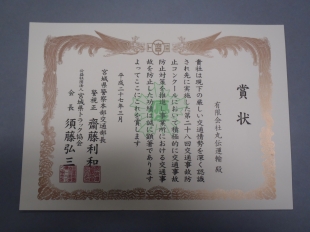 賞状
有限会社丸伝運輸殿
貴社は現下の厳しい交通情勢を深く認識
され先に実施した第二十八回交通事故防
止コンクールにおいて積極的に交通事故
防止対策を推進し事業所における交通事
故を防止した功績は誠に顕著であります
よってここにこれを賞します
平成二十七年三月
宮城県警察本部交通部長
警視正 齋藤利和
公益社団法人 宮城県トラック協会
会長 須藤弘三